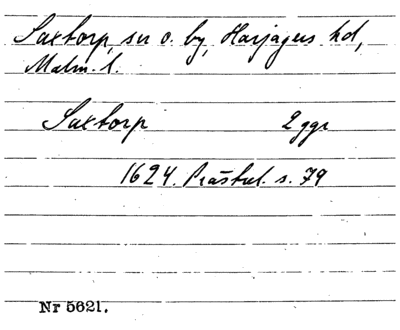 Saxtorp, sn o. by, Harjagers hd,
Malm. l.
Saxtorp 2 ggr
1624. Prästrel. s. 79
Nr 5621.